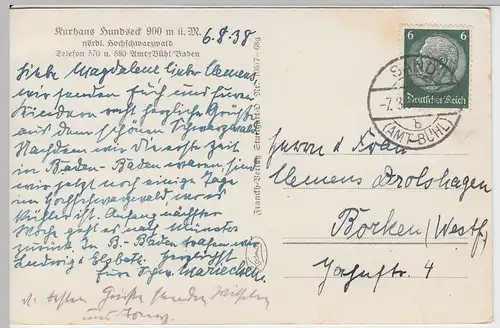 Kurhaus Hundseck 900 m ü. M.
nördl. Hochschwarzwald
Telefon 570 u. 580 Amt Bühl/Baden
6.8.38
Liebe Magdalene, lieber Clemens
wir senden Euch und Euren
Kindern recht herzliche Grüße
aus dem schönen Schwarzwald
Nachdem wir die erste Zeit
in Baden-Baden waren sind
wir jetzt noch einige Tage
im Hochschwarzwald wo es
kühler ist. Anfang nächster
Woche geht es nach Münster
zurück. In B-Baden trafen wir
Ludwig u. Elsbeth. Herzlichst
Eure Schw. Mariechen.
d. besten Grüße senden Wilhelm
und
Franckh-Verlag Stuttgart-O
6 6
Deutsches Reich
SAND
-7.8
b
(AMT BÜHL)
Herrn u. Frau
Clemens Drolshagen
Borken (Westf.
4